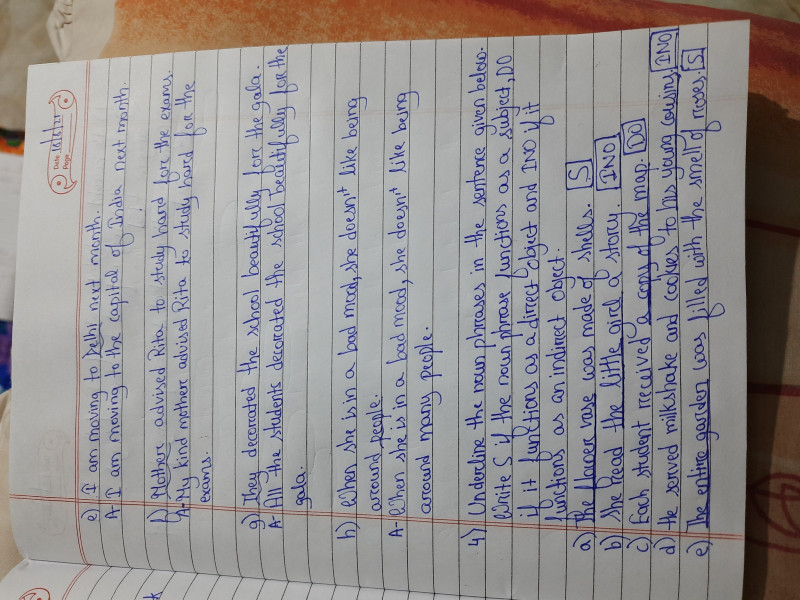 Date 16/6/21
Page
e) I am moving to Delhi next month.
A- I am moving to the capital of India next month.
f) Mother advised Rita to study hard for the exams.
A- My kind mother advised Rita to study hard for the
exams.
g) They decorated the school beautifully for the gala.
A- All the students decorated the school beautifully for the
gala.
h) When she is in a bad mood, she doesn't like being
around people.
A- When she is in a bad mood, she doesn't like being
around many people.
4) Underline the noun phrases in the sentence given below.
Write S if the noun phrase functions as a subject, DO
if it functions as a direct object and INO if it
functions as an indirect object.
a) The flower vase was made of shells. S
b) She read the little girl a story. INO
c) Each student received a copy of the map. DO
d) He served milkshake and cookies to his young cousins. INO
e) The entire garden was filled with the smell of roses. S